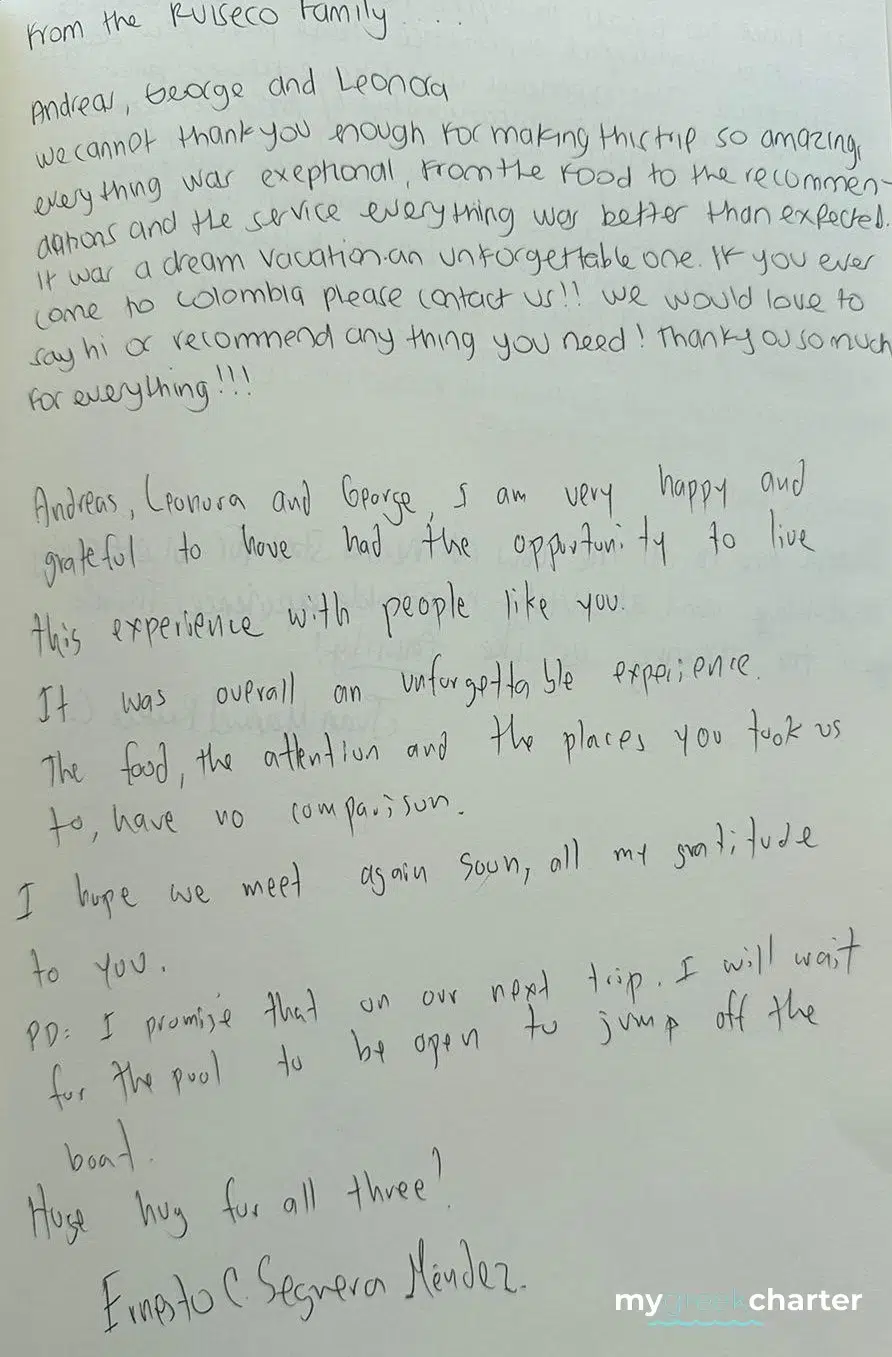 From the Ruiseco Family ....
Andreas, George and Leonora
we cannot thank you enough for making this trip so amazing,
everything was exeptional, from the food to the recommen-
dations and the service everything was better than expected.
It was a dream vacation.an unforgettable one. If you ever
come to colombia please contact us!! we would love to
say hi or recommend any thing you need! Thank you so much
for everything!!!
Andreas, Leonora and George, I am very happy and
grateful to have had the opportunity to live
this experience with people like you.
It was overall an unforgettable experience.
The food, the attention and the places you took us
to, have no comparison.
I hope we meet again soon, all my gratitude
to you.
PD: I promise that on our next trip. I will wait
for the pool to be open to jump off the
boat.
Huge hug for all three!
Ernesto C. Segrera Méndez.
mygreekcharter